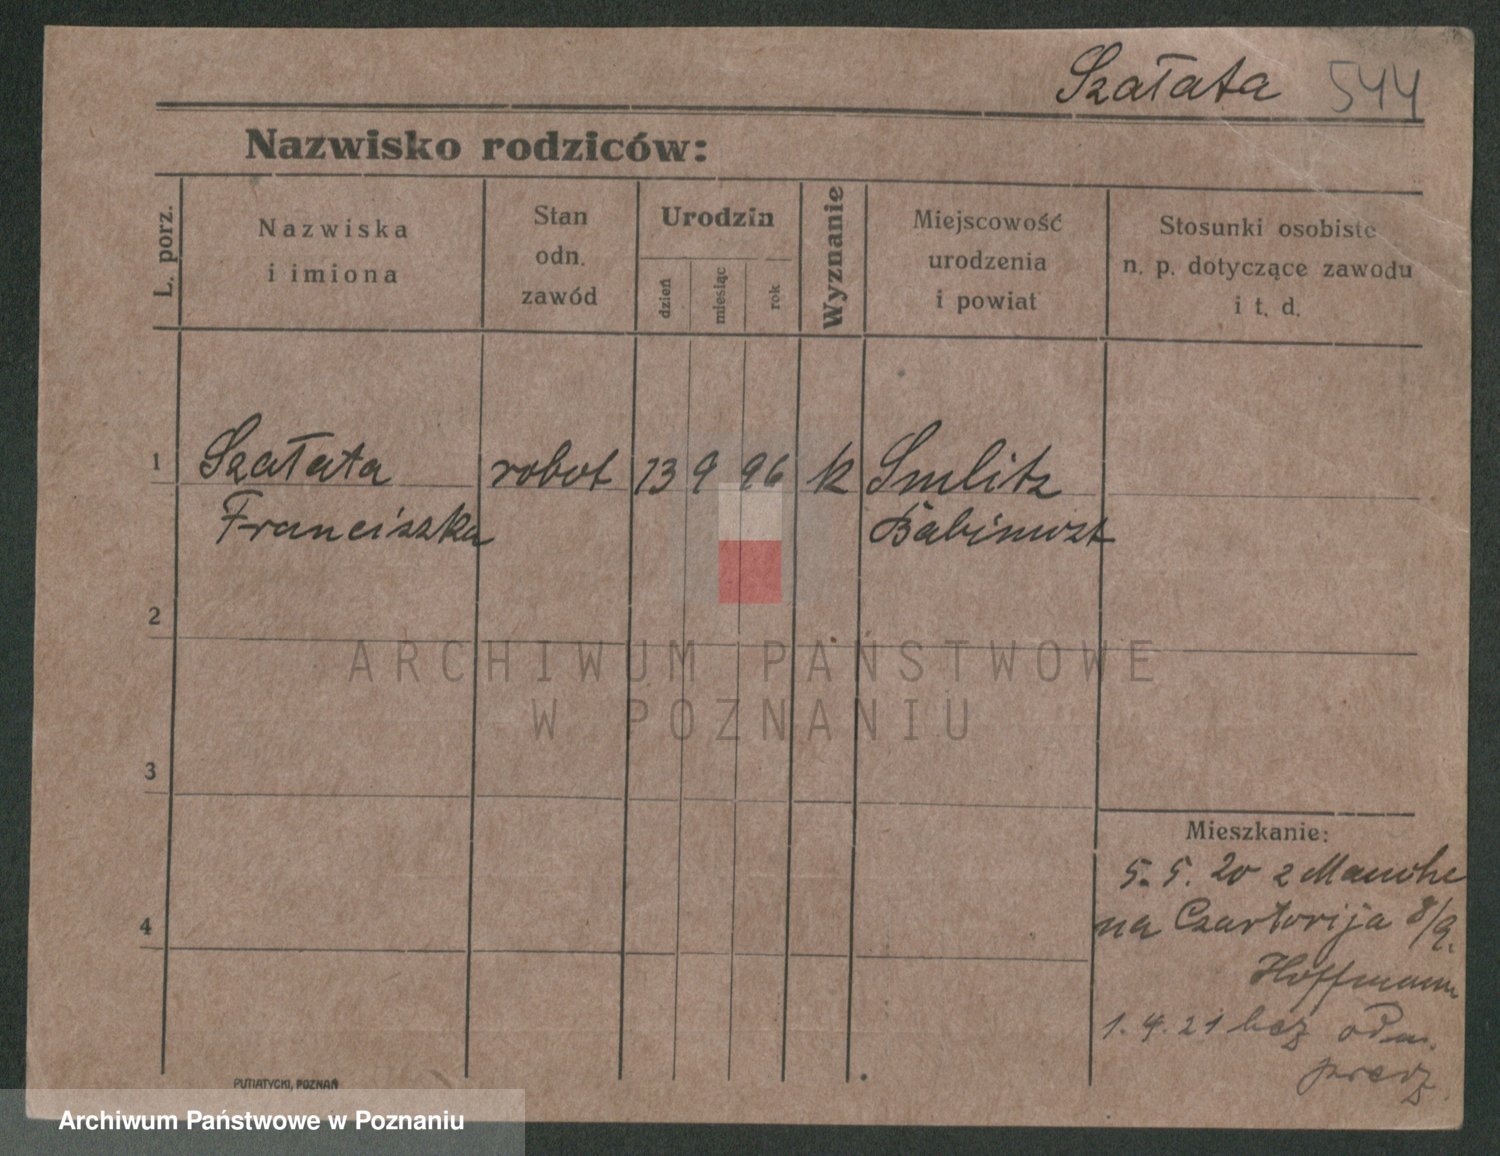 Szałata 544
Nazwisko rodziców:
L. porz.
Nazwiska
i imiona
Stan
odn.
zawód
Urodzin
dzień
miesiąc
rok
Wyznanie
Miejscowość
urodzenia
i powiat
Stosunki osobiste
n. p. dotyczące zawodu
i t. d.
1 Szałata robot 13 9 96 k Smlitz
Franciszka Babimost
2
3
4
ARCHIWUM PAŃSTWOWE
W POZNANIU
Mieszkanie:
5. 5. 20 z
na Czartorija 8/9.
Hoffmann
1. 4. 21 bez odm.
PUTIATYCKI, POZNAŃ
Archiwum Państwowe w Poznaniu